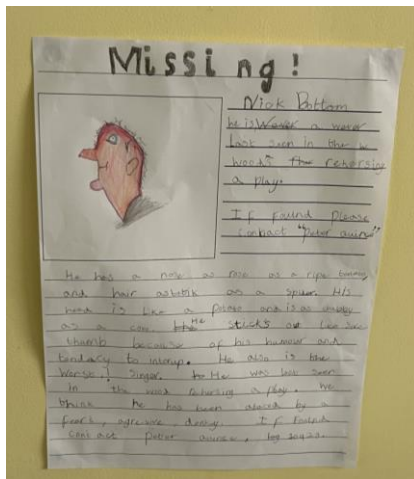 Missing!
Nick Bottom
he is a wever
last seen in the
woods rehersing
a play.
If found please
contact "Peter quince"
He has a nose as rose as a ripe
and hair as as a spider. His
head is like a potato and is as chubby
as a cow. He sticks out like sore
thumb because of his humour and
tendacy to interup. He also is the
Worst singer. He was last seen
in the wood rehersing a play. We
think he has been by a
donkey. If found
contact Peter